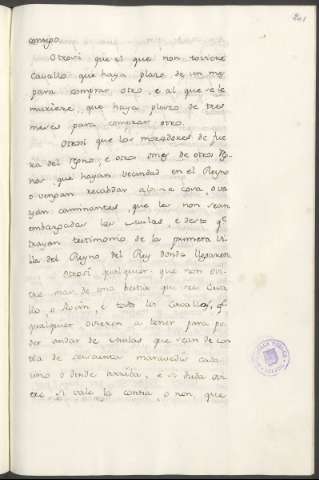 201
consigo.
Otrosi que el que non toviere
Cavallo que haya plazo de un mes
para comprar otro, e al que se le
muriere, que haya plazo de tres
meses para comprar otro.
Otrosi que los moradores de fue
ra del Reyno, e otro omes de otros Rey
nos, que hayan vecindad en el Reyno
o vengan recabdar alguna cosa, o va
yan caminantes, que les non sean
embargadas las mulas, e desto qe
trayan testimonio de la primera Vi
lla del Reyno del Rey donde llegaren
Otrosi qualquier que non ovi
ere mas de una bestia que sea Cava
llo, o Rocin, e todos los Cavallos, qe
qualquier ovieren a tener para po
der andar de mulas que sean de con
tia de maravedis cada
uno o dende arriba, e si duda ovi
ere, si vale la contia, o non, que